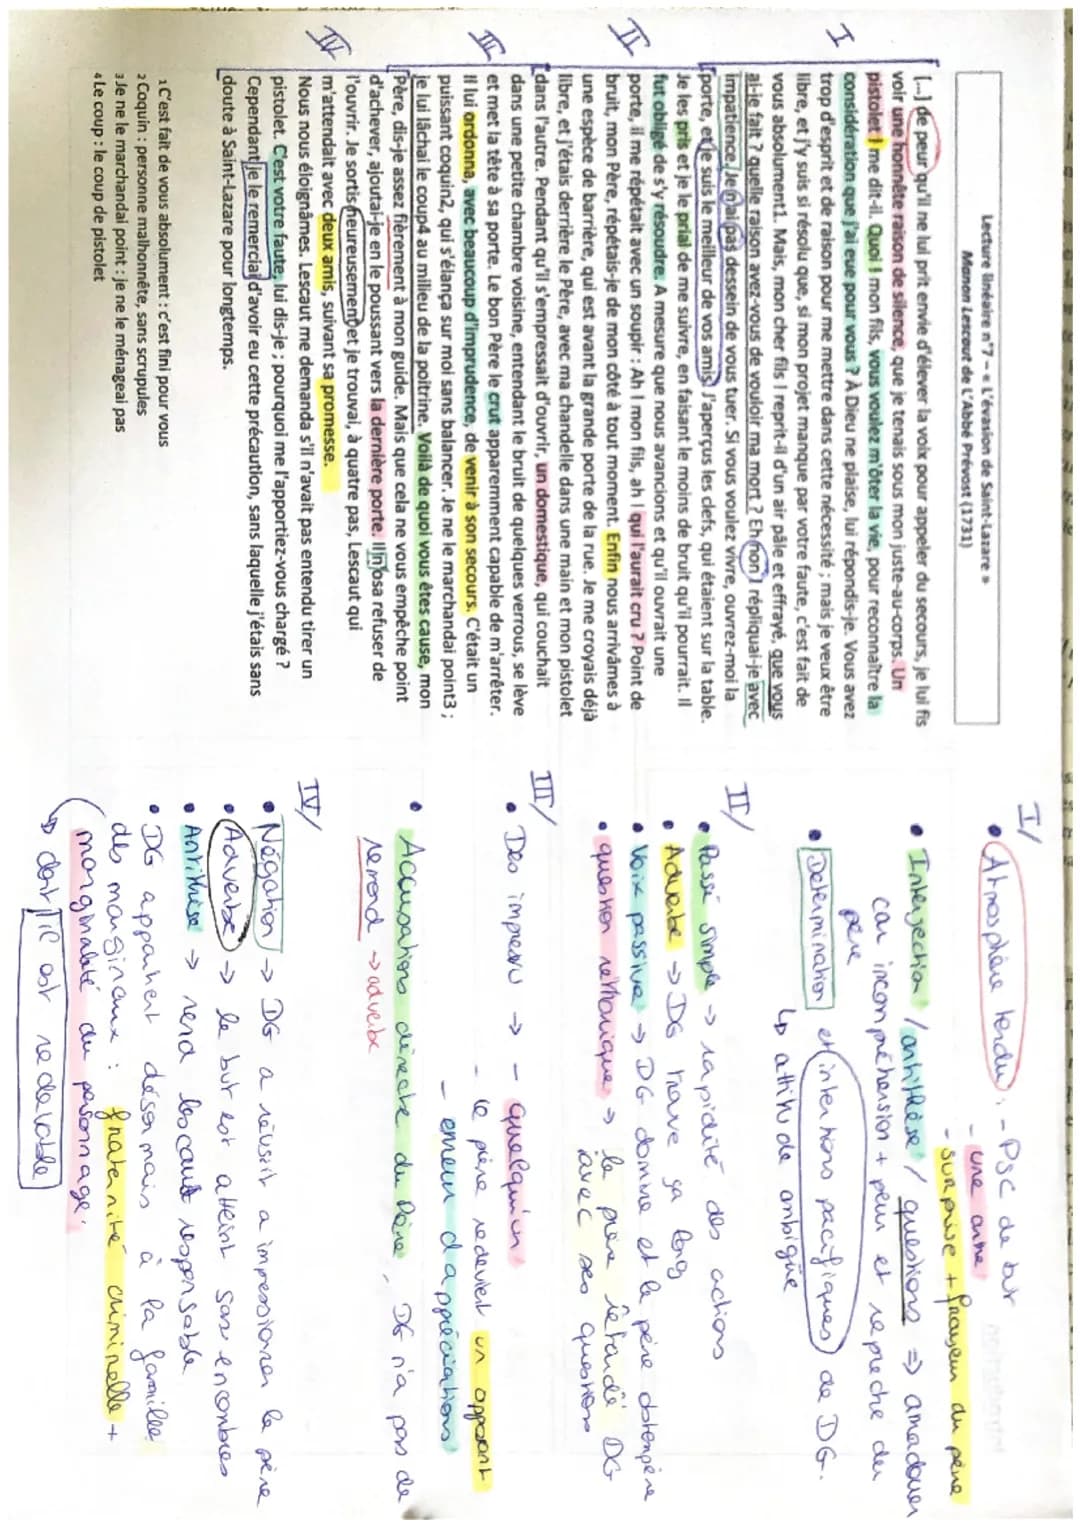 Lecture linéaire n°7 – « L'évasion de Saint-Lazare »
Manon Lescaut de L'Abbé Prévost (1731)
I
[...] de peur qu'il ne lui prit envie d'élever la voix pour appeler du secours, je lui fis
voir une honnête raison de silence, que je tenais sous mon juste-au-corps. Un
pistolet ! me dit-il. Quoi ! mon fils, vous voulez m'ôter la vie, pour reconnaître la
considération que j'ai eue pour vous ? À Dieu ne plaise, lui répondis-je. Vous avez
trop d'esprit et de raison pour me mettre dans cette nécessité ; mais je veux être
libre, et j'y suis si résolu que, si mon projet manque par votre faute, c'est fait de
vous absolument1. Mais, mon cher fils ! reprit-il d'un air pâle et effrayé, que vous
ai-je fait ? quelle raison avez-vous de vouloir ma mort ? Eh non ! répliquai-je avec
impatience. Je n'ai pas dessein de vous tuer. Si vous voulez vivre, ouvrez-moi la
porte, et je suis le meilleur de vos amis. J'aperçus les clefs, qui étaient sur la table.
II
Je les pris et je le priai de me suivre, en faisant le moins de bruit qu'il pourrait. Il
fut obligé de s'y résoudre. A mesure que nous avancions et qu'il ouvrait une
porte, il me répétait avec un soupir : Ah ! mon fils, ah ! qui l'aurait cru ? Point de
bruit, mon Père, répétais-je de mon côté à tout moment. Enfin nous arrivâmes à
une espèce de barrière, qui est avant la grande porte de la rue. Je me croyais déjà
libre, et j'étais derrière le Père, avec ma chandelle dans une main et mon pistolet
dans l'autre. Pendant qu'il s'empressait d'ouvrir, un domestique, qui couchait
III
dans une petite chambre voisine, entendant le bruit de quelques verrous, se lève
et met la tête à sa porte. Le bon Père le crut apparemment capable de m'arrêter.
Il lui ordonna, avec beaucoup d'imprudence, de venir à son secours. C'était un
puissant coquin2, qui s'élança sur moi sans balancer. Je ne le marchandai point3 ;
je lui lâchai le coup4 au milieu de la poitrine. Voilà de quoi vous êtes cause, mon
Père, dis-je assez fièrement à mon guide. Mais que cela ne vous empêche point
d'achever, ajoutai-je en le poussant vers la dernière porte. Il n'osa refuser de
l'ouvrir. Je sortis heureusement et je trouvai, à quatre pas, Lescaut qui
IV
m'attendait avec deux amis, suivant sa promesse.
Nous nous éloignâmes. Lescaut me demanda s'il n'avait pas entendu tirer un
pistolet. C'est votre faute, lui dis-je ; pourquoi me l'apportiez-vous chargé ?
Cependant je le remerciai d'avoir eu cette précaution, sans laquelle j'étais sans
doute à Saint-Lazare pour longtemps.
1 C'est fait de vous absolument : c'est fini pour vous
2 Coquin : personne malhonnête, sans scrupules
3 Je ne le marchandai point : je ne le ménageai pas
4 Le coup : le coup de pistolet
I/
• Atmosphère tendu : - PSC de but
- une arme
- surprise + frayeur du père
• Interjection / antithèse / questions ⇒ amadouer
car incompréhension + peur et reproche du
père
• Détermination et intentions pacifiques de DG.
↳ attitude ambigüe
II/
• Passé simple → rapidité des actions
• Adverbe → DG trouve ça long
• Voix passive → DG domine et le père obtempère
• question rethorique → le père retarde DG
avec ses questions
III/
• Des imprévu → - quelqu'un
- le père redevient un opposant
- erreur d'appréciations
• Accusations directe du Père, DG n'a pas de
remord → adverbe
IV/
• Négation → DG a réussit a impressionner le père
• Adverbe → le but est atteint sans encombres
• Antithèse → rend Lescaut responsable
• DG appartient désormais à la famille
des marginaux : fraternité criminelle +
marginalité du personnage.
↳ dont il est redevable